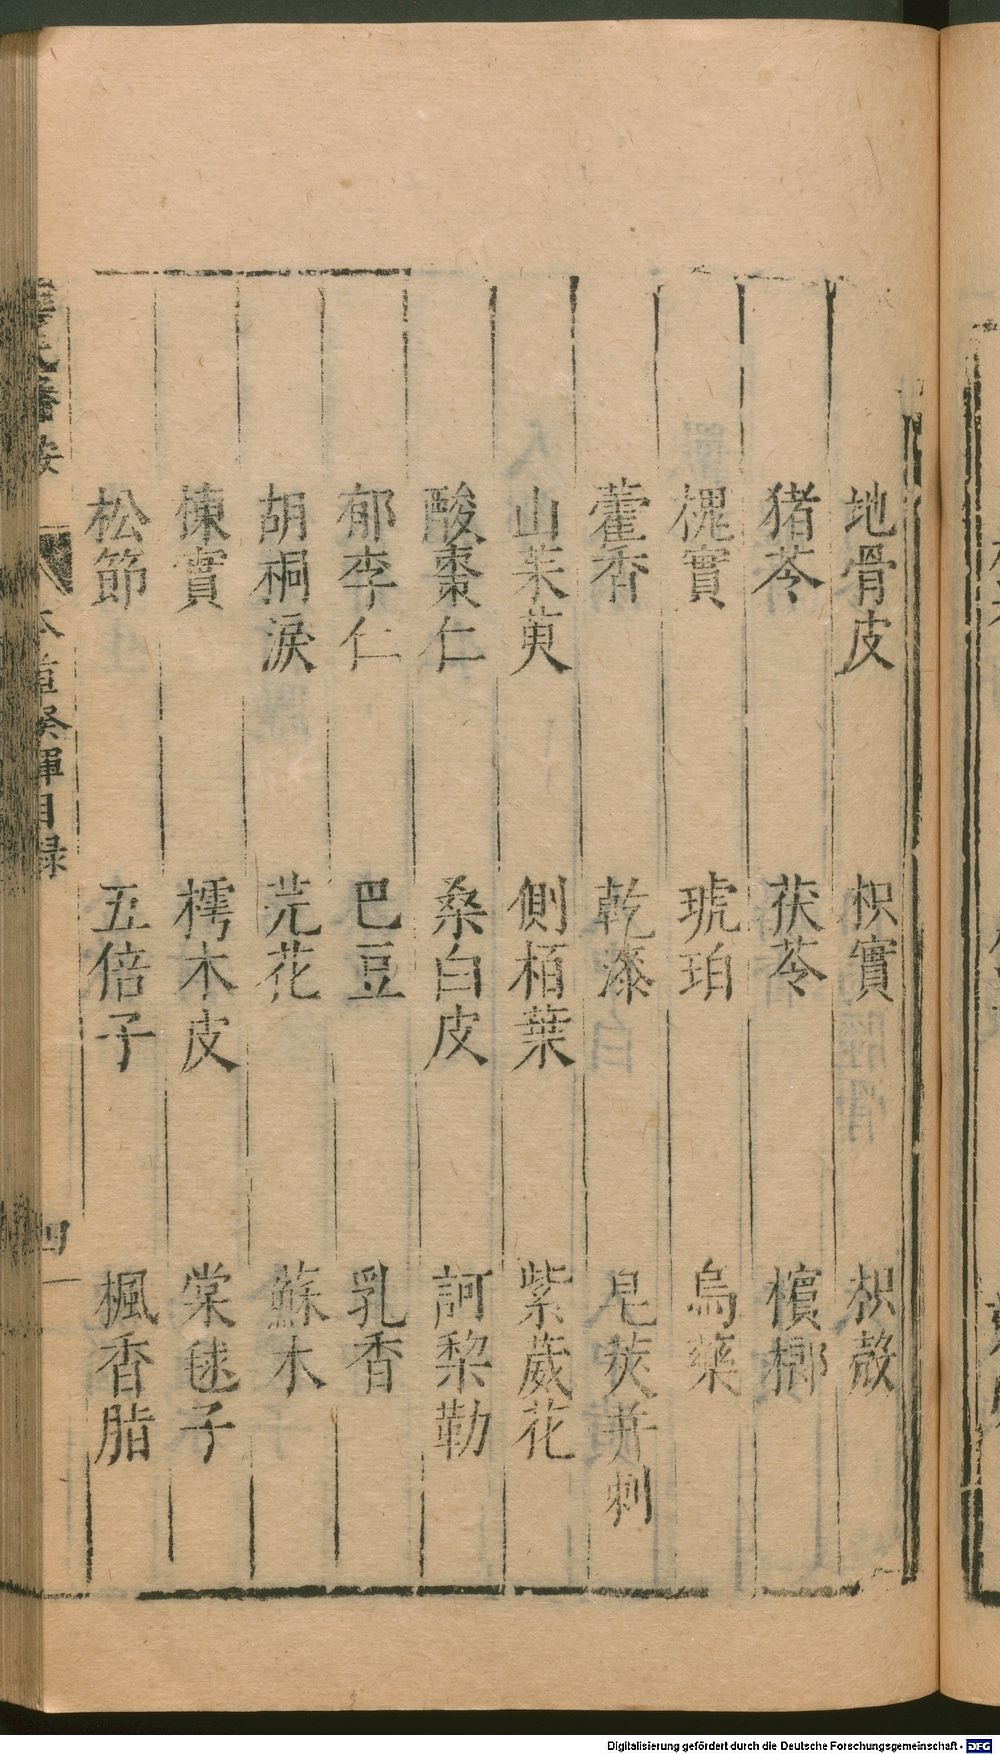 地骨皮　枳實　枳殼
猪苓　茯苓　檳榔
槐實　琥珀　烏藥
藿香　乾漆　皂莢并刺
山茱萸　側栢葉　紫葳花
酸棗仁　桑白皮　訶梨勒
郁李仁　巴豆　乳香
胡桐淚　芫花　蘇木
楝實　樗木皮　棠毬子
松節　五倍子　楓香脂
醫按　本草發揮目録　四
Digitalisierung gefördert durch die Deutsche Forschungsgemeinschaft - DFG